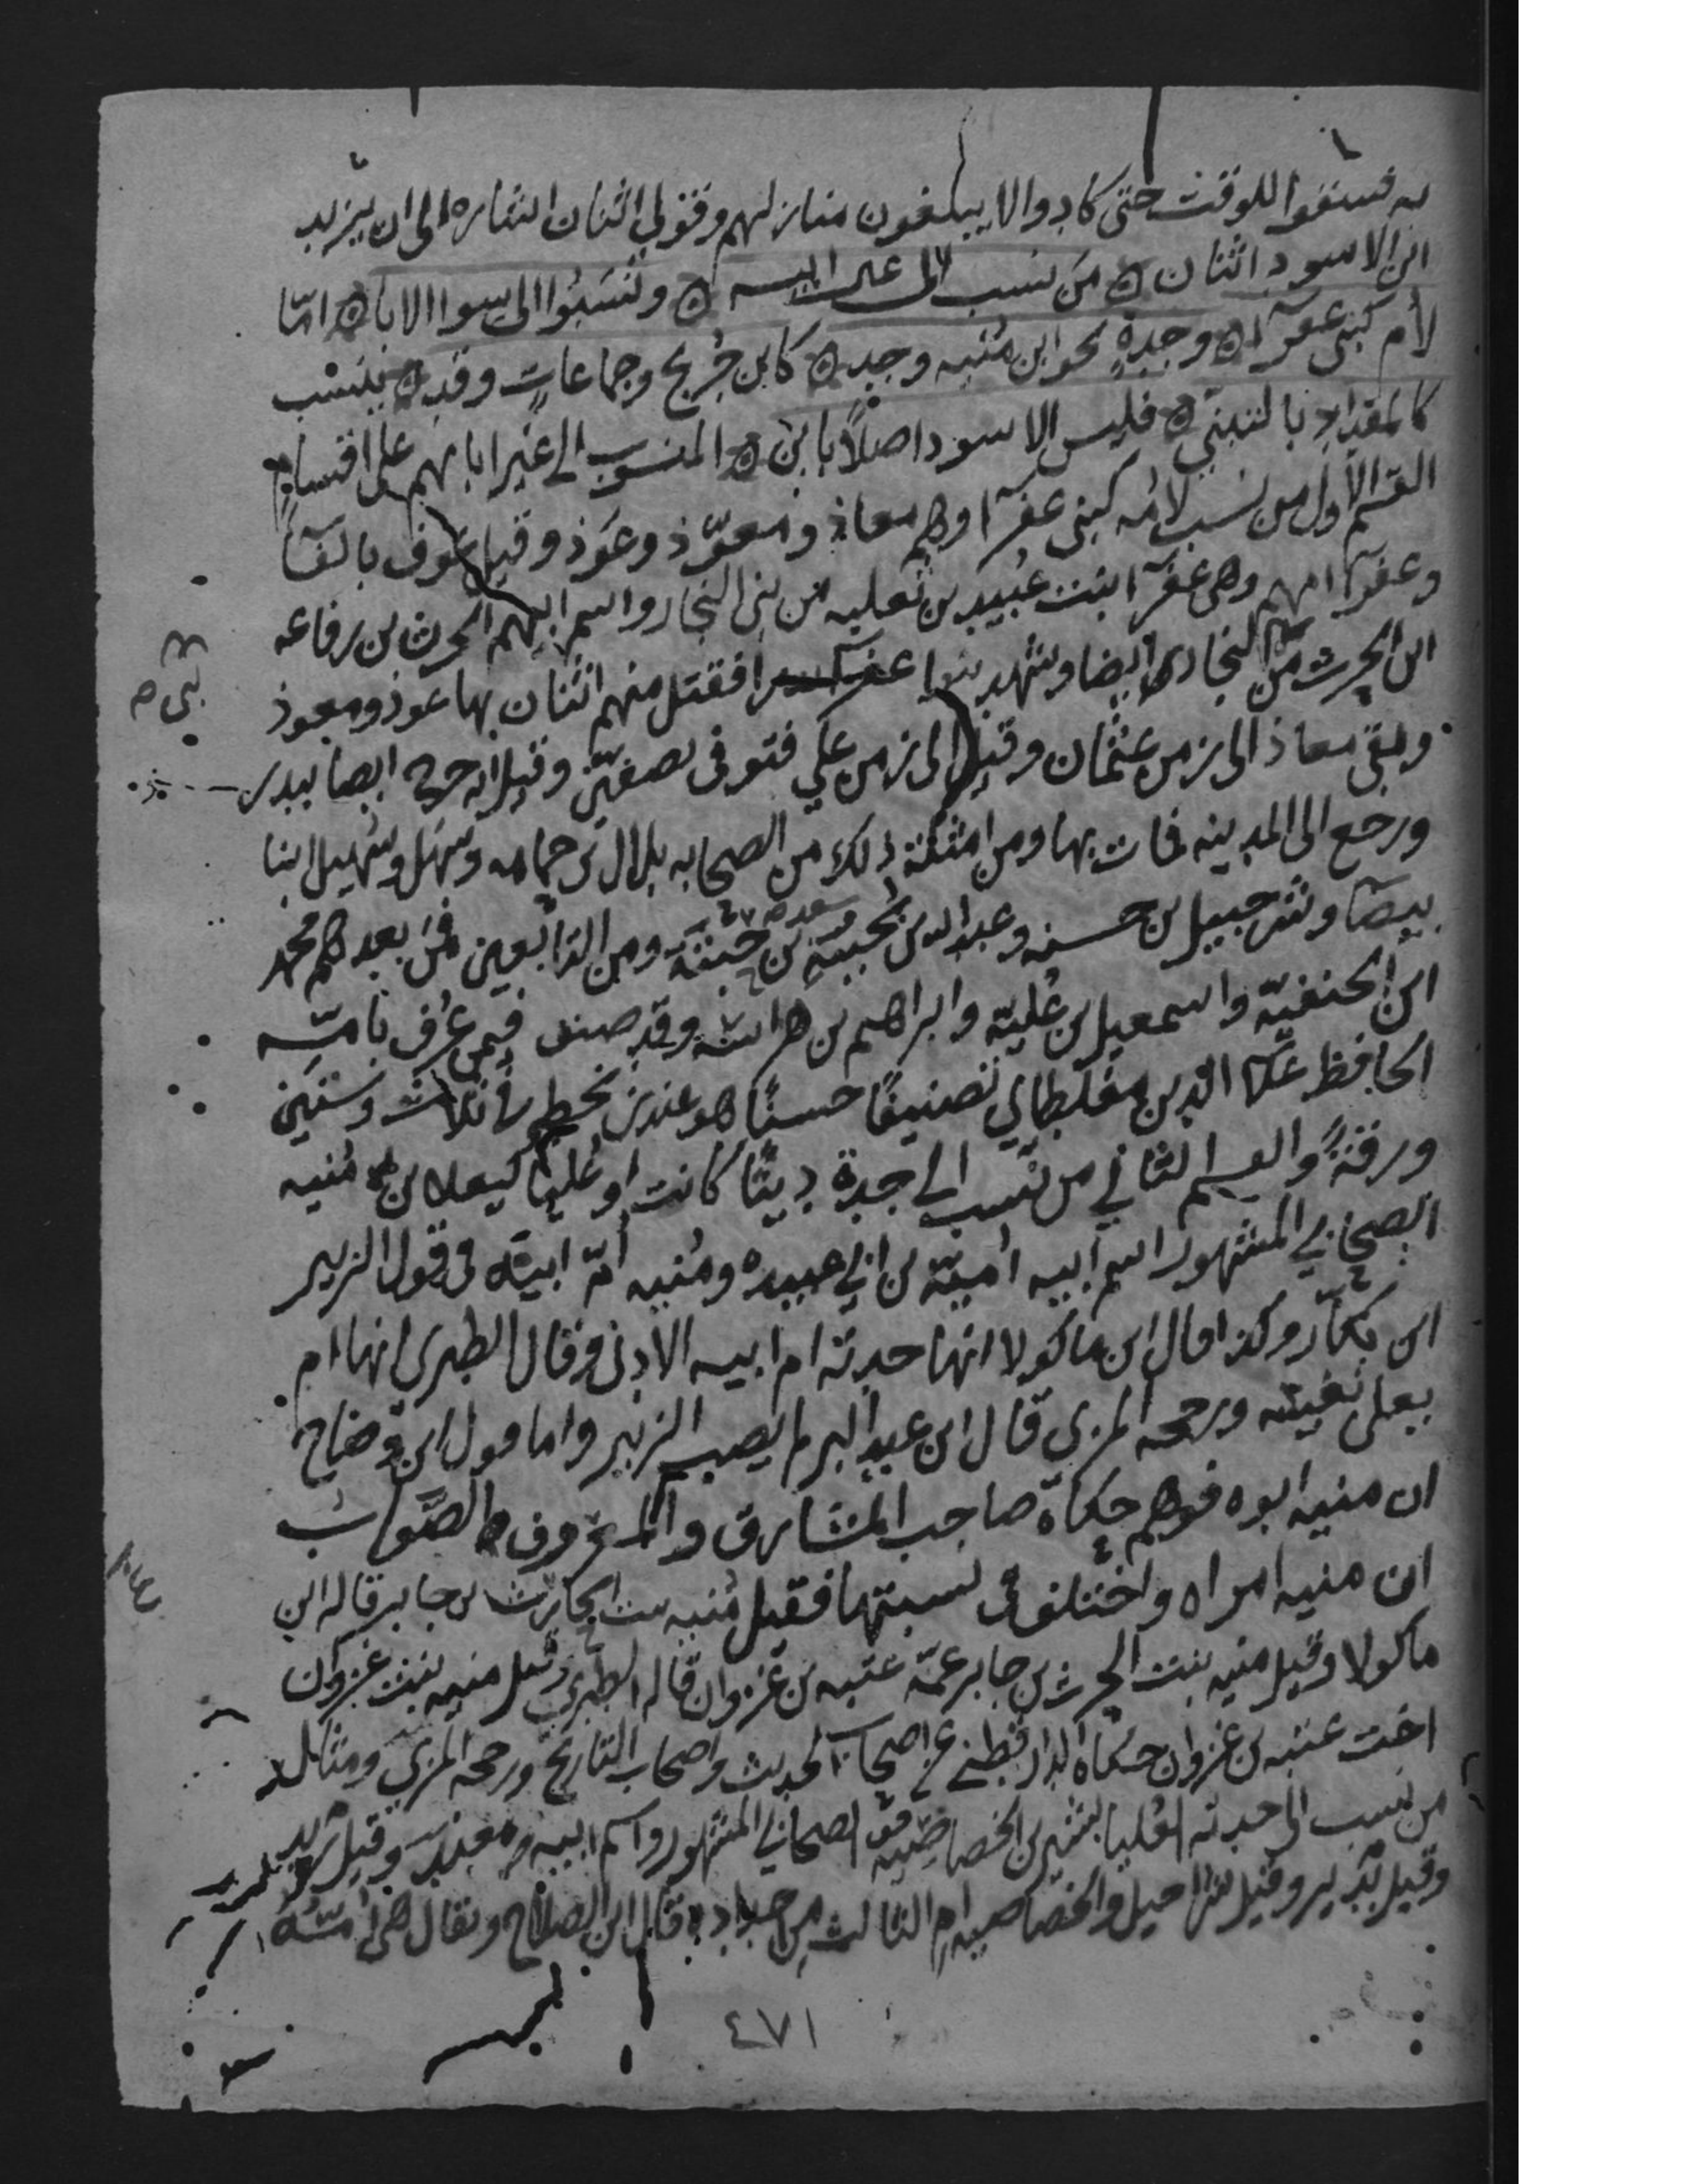 به فسقوا للوقت حتى كادوا لا يبلغون منازلهم وقولي اثنان اشاره الى ان يزيد
ابن الاسود اثنان ه من نسب الى غير ابيه ه ونسبوا الى سوا الاباء ه امّا
لأم كبنى عفرآ ه وجدةٍ نحو ابن منيه وجد ه كابن جُريج وجماعاتٍ وقد ه ينسب
كالمقداد بالتبنّي ه فليس الاسود اصلاً بابن ه المنسوب الى غير ابابهم على اقسام
القسم الاول من نسب لامّه كبنى عفرآ وهم معاذ ومعوّذ وعوذ وقيل عوف بالفآ
وعفرآ امهم وهى عفرآ ابنت عُبيد بن ثعلبه من بنى النجار واسم ابيهم الحرث بن رفاعه
ابن الحرث من النجار ايضا وشهد بنوا عفرآ بدرا فقتل منهم اثنان بها عوذ ومعوذ
بنى
وبقى معاذ الى زمن عثمان وقيل الى زمن علي فتوفى بصفين وقيل انه جرح ايضا ببدر
ورجع الى المدينه فمات بها ومن امثلة ذلك من الصحابه بلال بن حمامه وسهل وسُهيل ابنا
بيضآ وشرحبيل بن حسنه وعبد الله بن بُحينة وسعد بن حبتة ومن التابعين فمن بعدهم محمد
ابن الحنفيّة واسمعيل بن عُليّة وابراهيم بن هراسة وقد صنف فيمن عُرف بامّه
الحافظ علا الدين مغلطاي تصنيفًا حسنًا هو عندى بخطه في ثلاث وستين
ورقةً والقسم الثاني من نسب الى جدة دنيًا كانت او عُليا كيعلى بن مُنيه
الصحابي المشهور اسم ابيه اميّة بن ابي عبيده ومُنيه امّ ابيه فى قول الزبير
ابن بكار وكذا قال ابن ماكولا انها جدته ام ابيه الادنى وقال الطبرى انها ام
يعلى نفسه ورجحه المزى قال ابن عبد البر لم يصب الزبير واما قول ابن وضاح
ان منيه ابوه فوهم حكاه صاحب المشارق والمعروف الصواب
ان منيه امراه واختلف فى نسبتها فقيل مُنيه بنت الحارث بن جابر قاله ابن
ماكولا وقيل منيه بنت الحرث بن جابر عمّة عتبه بن غزوان قاله الطبرى وقيل منيه بنت غزوان
اخت عتبه بن غزوان حكاه الدارقطني عن اصحاب الحديث واصحاب التاريخ ورجحه المزى ومثال
من نسب الى جدته العُليا بشير بن الخصاصية الصحابي المشهور واسم ابيه معبد وقيل
وقيل بُدير وقيل شراحيل والخصاصيه ام الثالث من اجداده قاله ابن الصلاح ويقال هى امّه
٤٧١